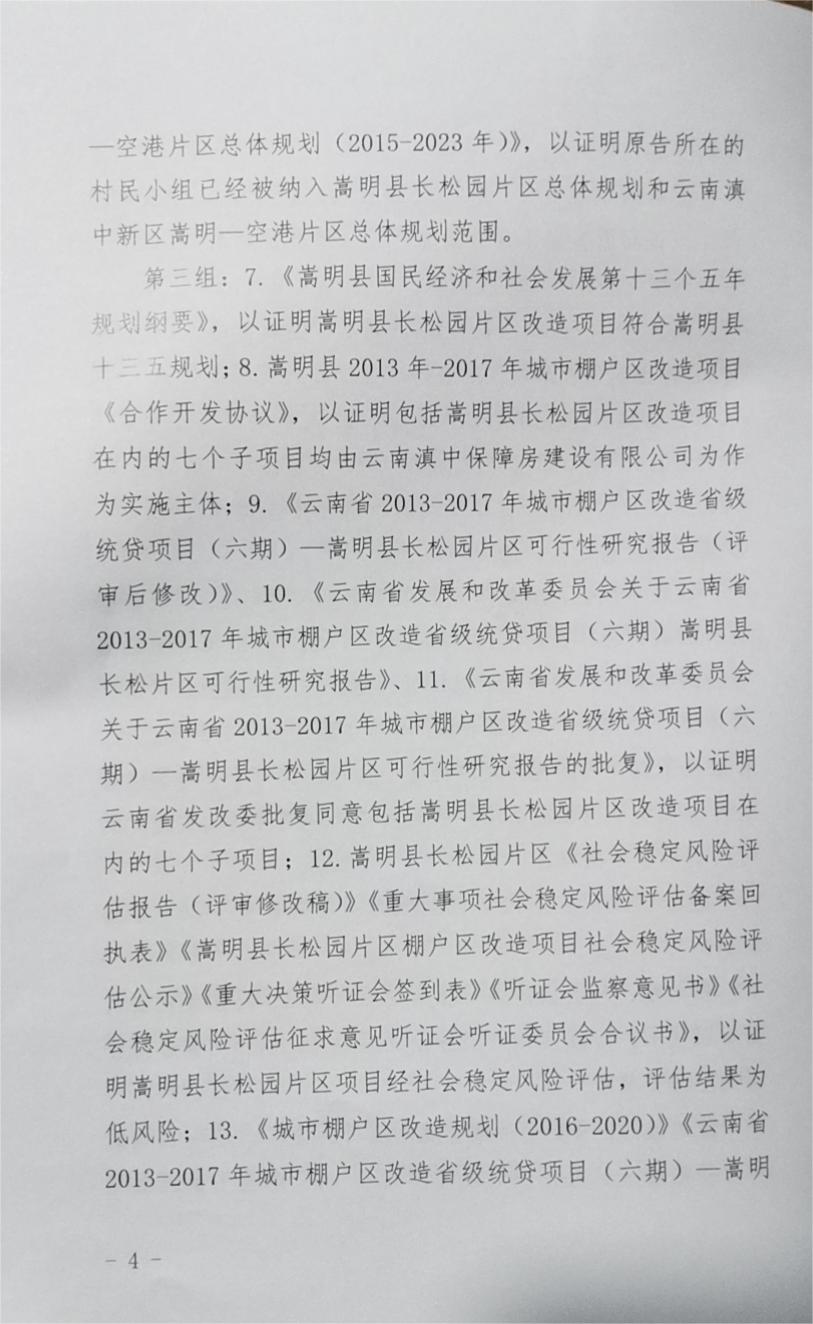 —空港片区总体规划（2015-2023 年）》，以证明原告所在的
村民小组已经被纳入嵩明县长松园片区总体规划和云南滇
中新区嵩明—空港片区总体规划范围。
第三组：7.《嵩明县国民经济和社会发展第十三个五年
规划纲要》，以证明嵩明县长松园片区改造项目符合嵩明县
十三五规划；8.嵩明县 2013 年-2017 年城市棚户区改造项目
《合作开发协议》，以证明包括嵩明县长松园片区改造项目
在内的七个子项目均由云南滇中保障房建设有限公司为作
为实施主体；9.《云南省 2013-2017 年城市棚户区改造省级
统贷项目（六期）—嵩明县长松园片区可行性研究报告（评
审后修改）》、10.《云南省发展和改革委员会关于云南省
2013-2017 年城市棚户区改造省级统贷项目（六期）嵩明县
长松片区可行性研究报告》、11.《云南省发展和改革委员会
关于云南省 2013-2017 年城市棚户区改造省级统贷项目（六
期）—嵩明县长松园片区可行性研究报告的批复》，以证明
云南省发改委批复同意包括嵩明县长松园片区改造项目在
内的七个子项目；12.嵩明县长松园片区《社会稳定风险评
估报告（评审修改稿）》《重大事项社会稳定风险评估备案回
执表》《嵩明县长松园片区棚户区改造项目社会稳定风险评
估公示》《重大决策听证会签到表》《听证会监察意见书》《社
会稳定风险评估征求意见听证会听证委员会合议书》，以证
明嵩明县长松园片区项目经社会稳定风险评估，评估结果为
低风险；13.《城市棚户区改造规划（2016-2020）》《云南省
2013-2017 年城市棚户区改造省级统贷项目（六期）—嵩明
- 4 -